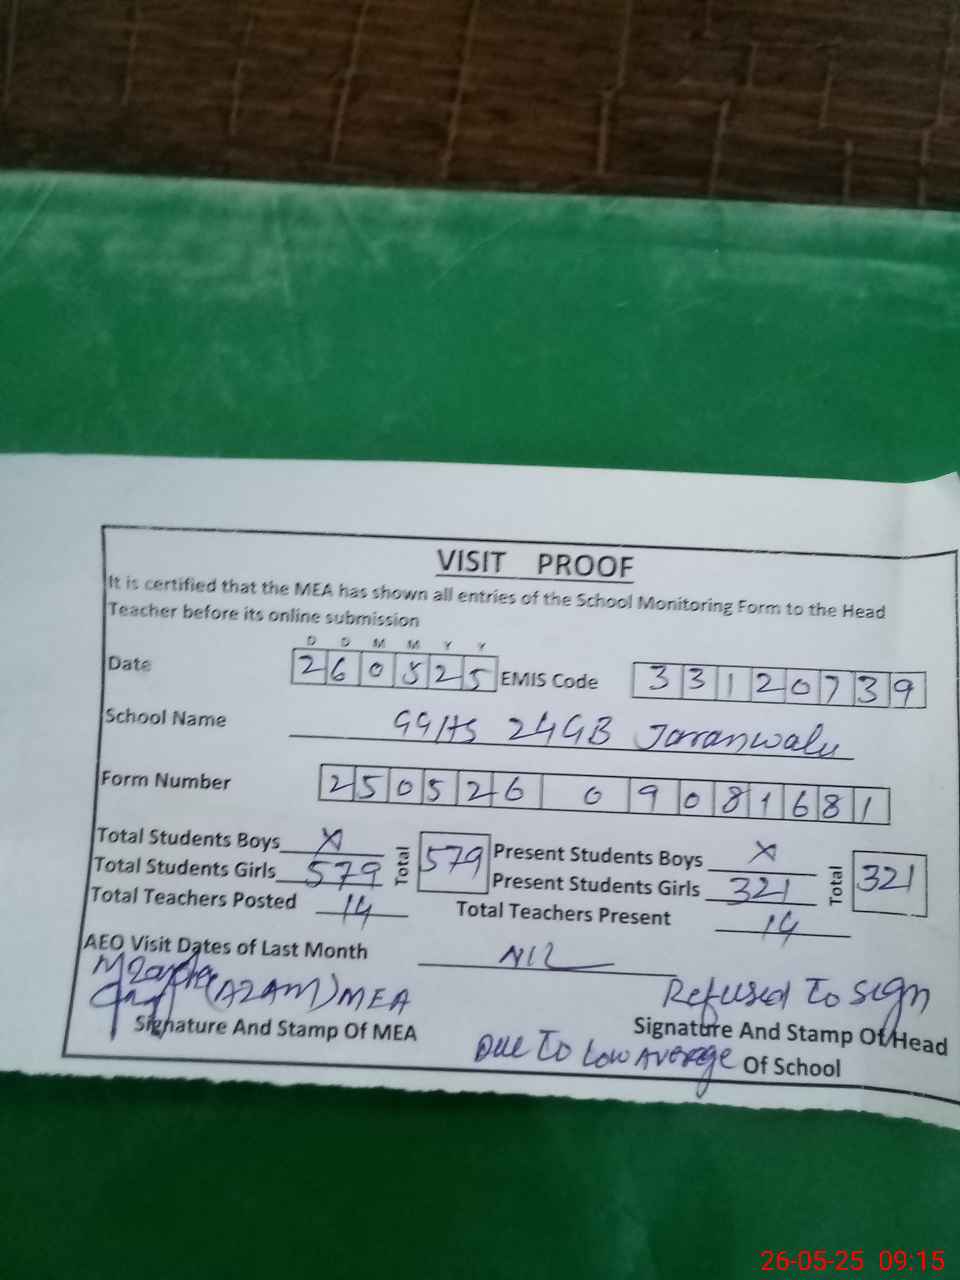 VISIT PROOF
It is certified that the MEA has shown all entries of the School Monitoring Form to the Head
Teacher before its online submission
D D M M Y Y
Date 260525 EMIS Code 33120739
School Name GGHS 24GB Jaranwala
Form Number 250526 0 9081681
Total Students Boys X Total 579 Present Students Boys X Total 321
Total Students Girls 579 Present Students Girls 321
Total Teachers Posted 14 Total Teachers Present 14
AEO Visit Dates of Last Month NIL
(AZAM) MEA Refused To sign
Signature And Stamp Of MEA Signature And Stamp Of Head
Due To Low Average Of School
26-05-25 09:15